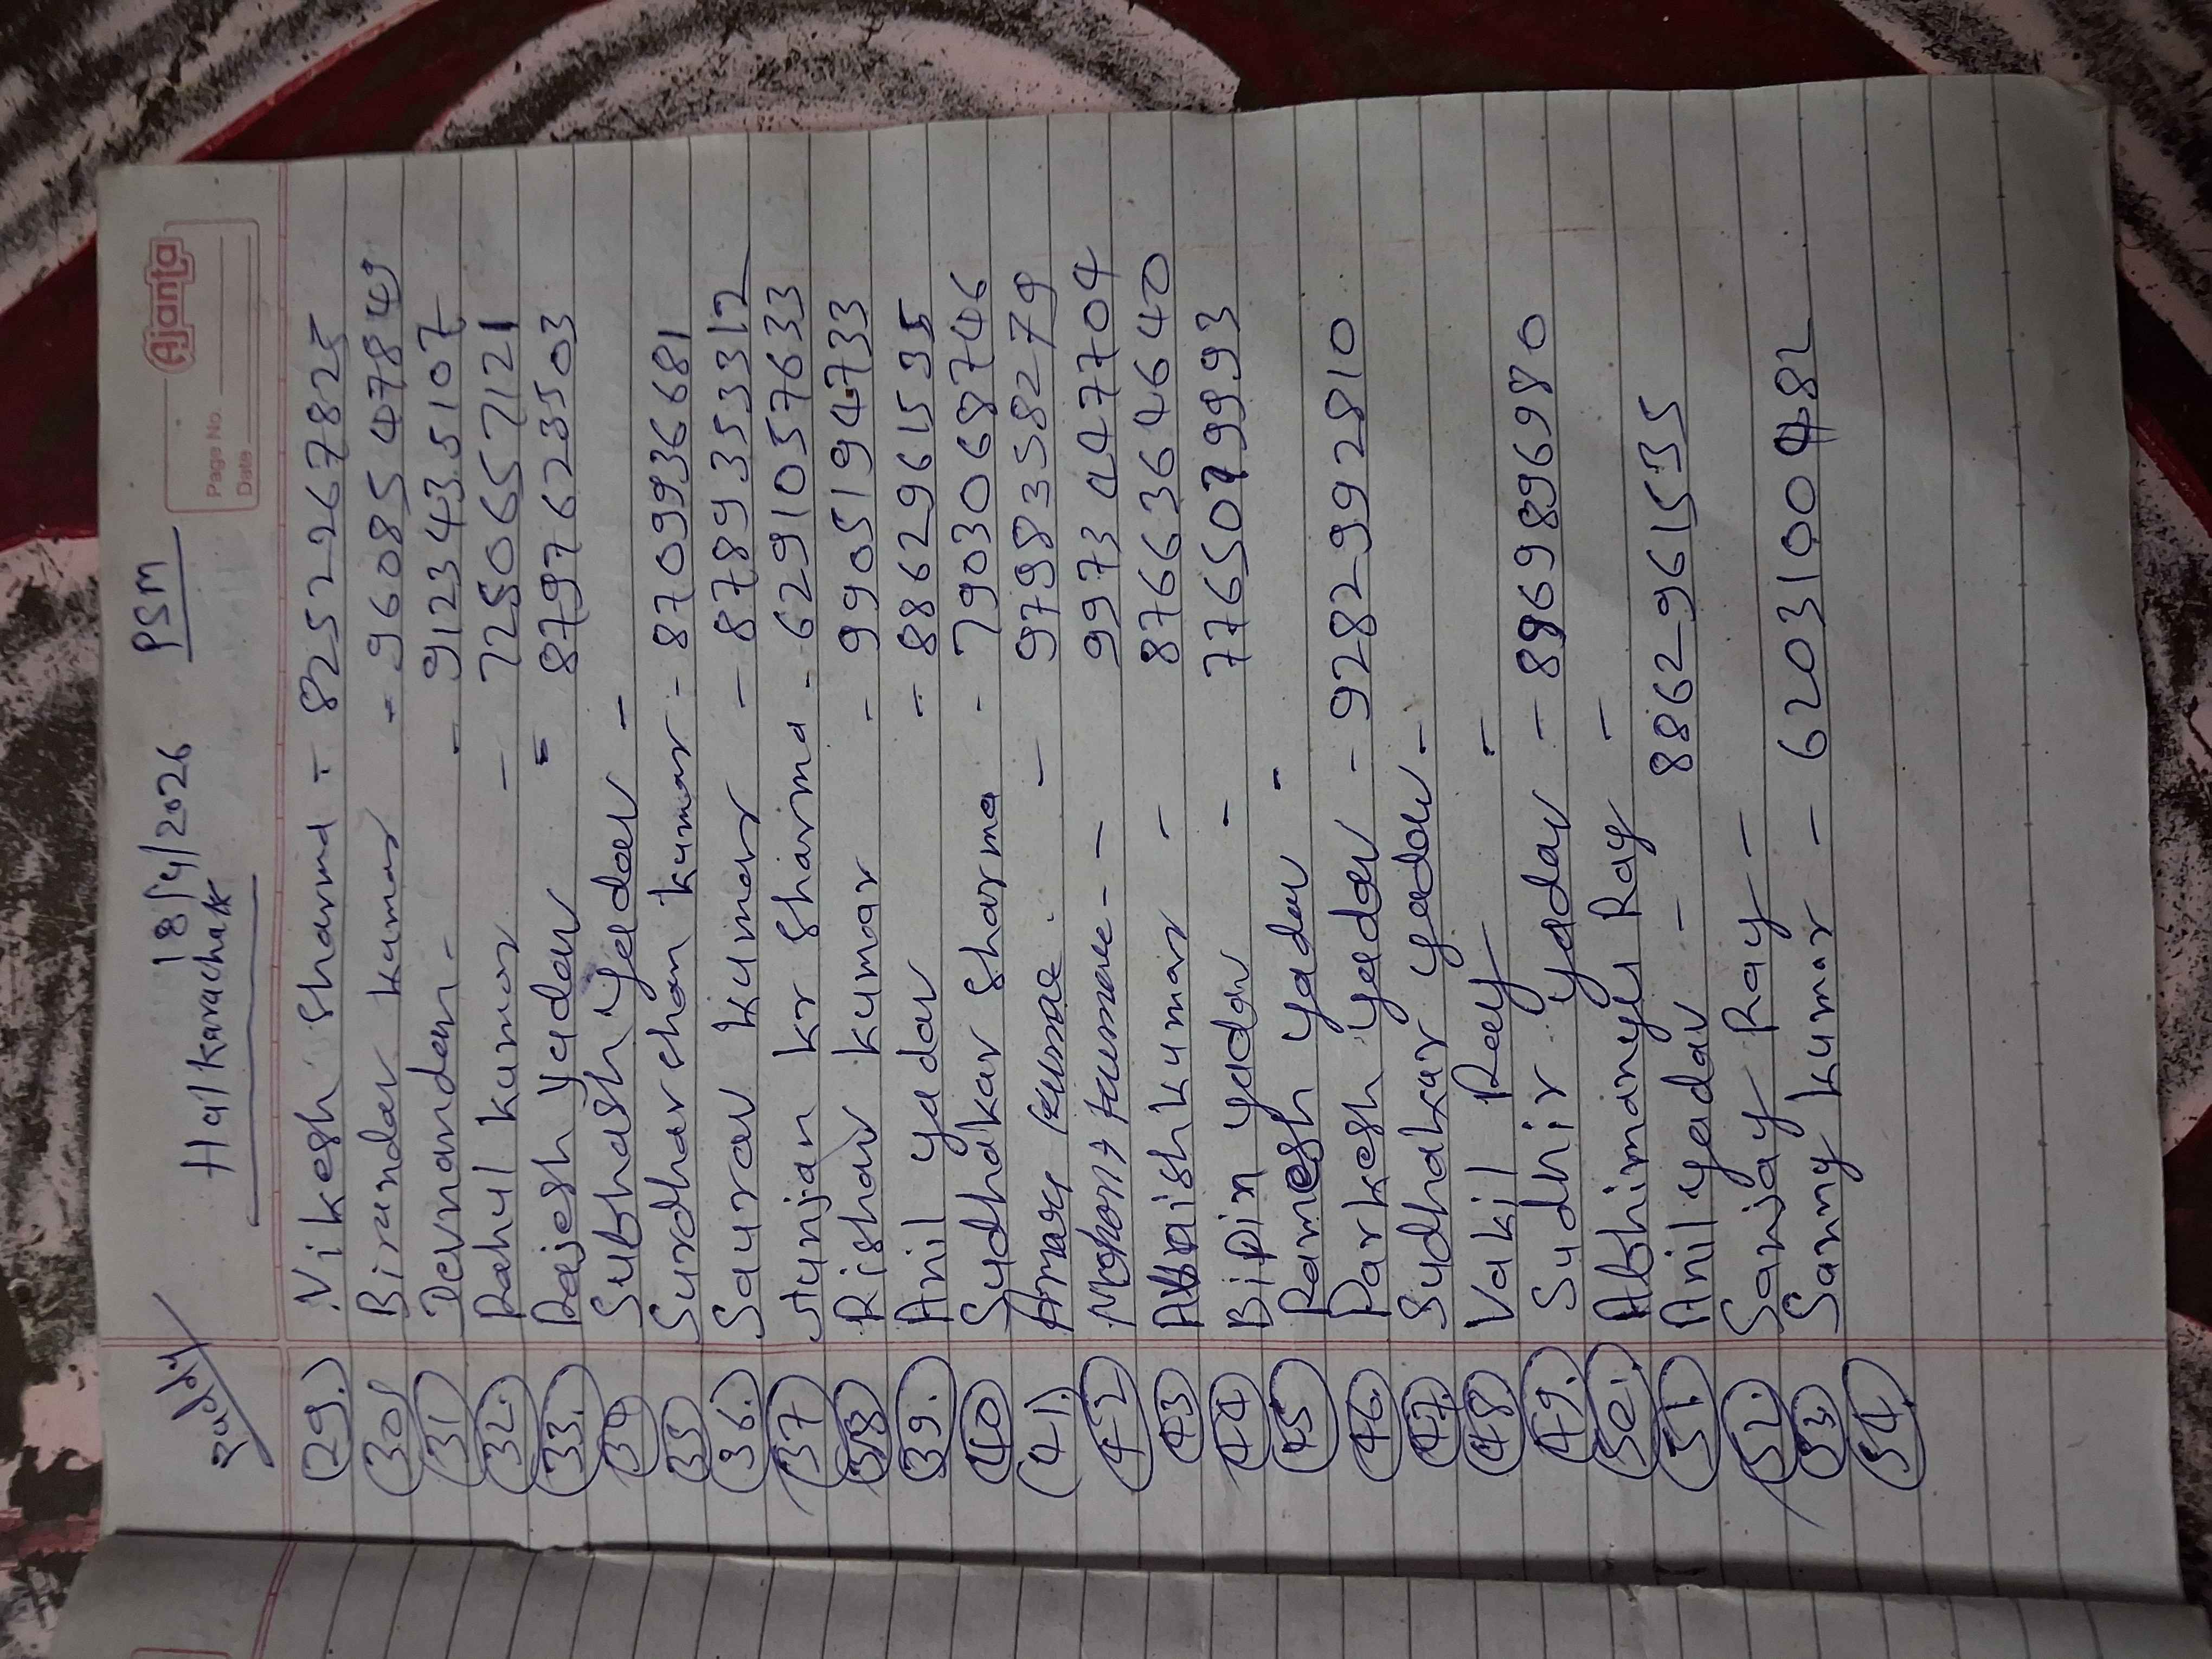 Ajanta
Page No
Date
18/4/2026 PSM
Halkarachak
(29.) Vikesh Sharma - 8252267825
(30) Birundar kumar - 9608547849
(31) Devnanden - - 9123435107
(32.) Rahul kumar - 7250657121
(33.) Rajesh yadav = 8797623503
(34) Subhash yadav -
(35) Surdharchan kumar - 8709936681
(36.) Saurav kumar - 8789353312
(37) Aunjan kr Sharma - 6291057633
(38) Rishav kumar - 9905194733
(39.) Anil yadav - 8862961535
(40) Sudhakar Sharma - 7903068746
(41). kumar - 9798358279
(42) kumar - - 9973447704
(43) kumar - 8766364640
(44) Bipin yadav - 7765079993
(45) Ramesh yadav -
(46.) Parkesh yadav - 9282992810
(47.) Sudhakar yadav -
(48.) Vakil Rey -
(49.) Sudhir yadav - 8969896980
(50.) Abhimanyu Ray -
(51.) Anil yadav - 8862961535
(52.) Sanjay Ray -
(53.) Sanny kumar - 6203100482
(54.)